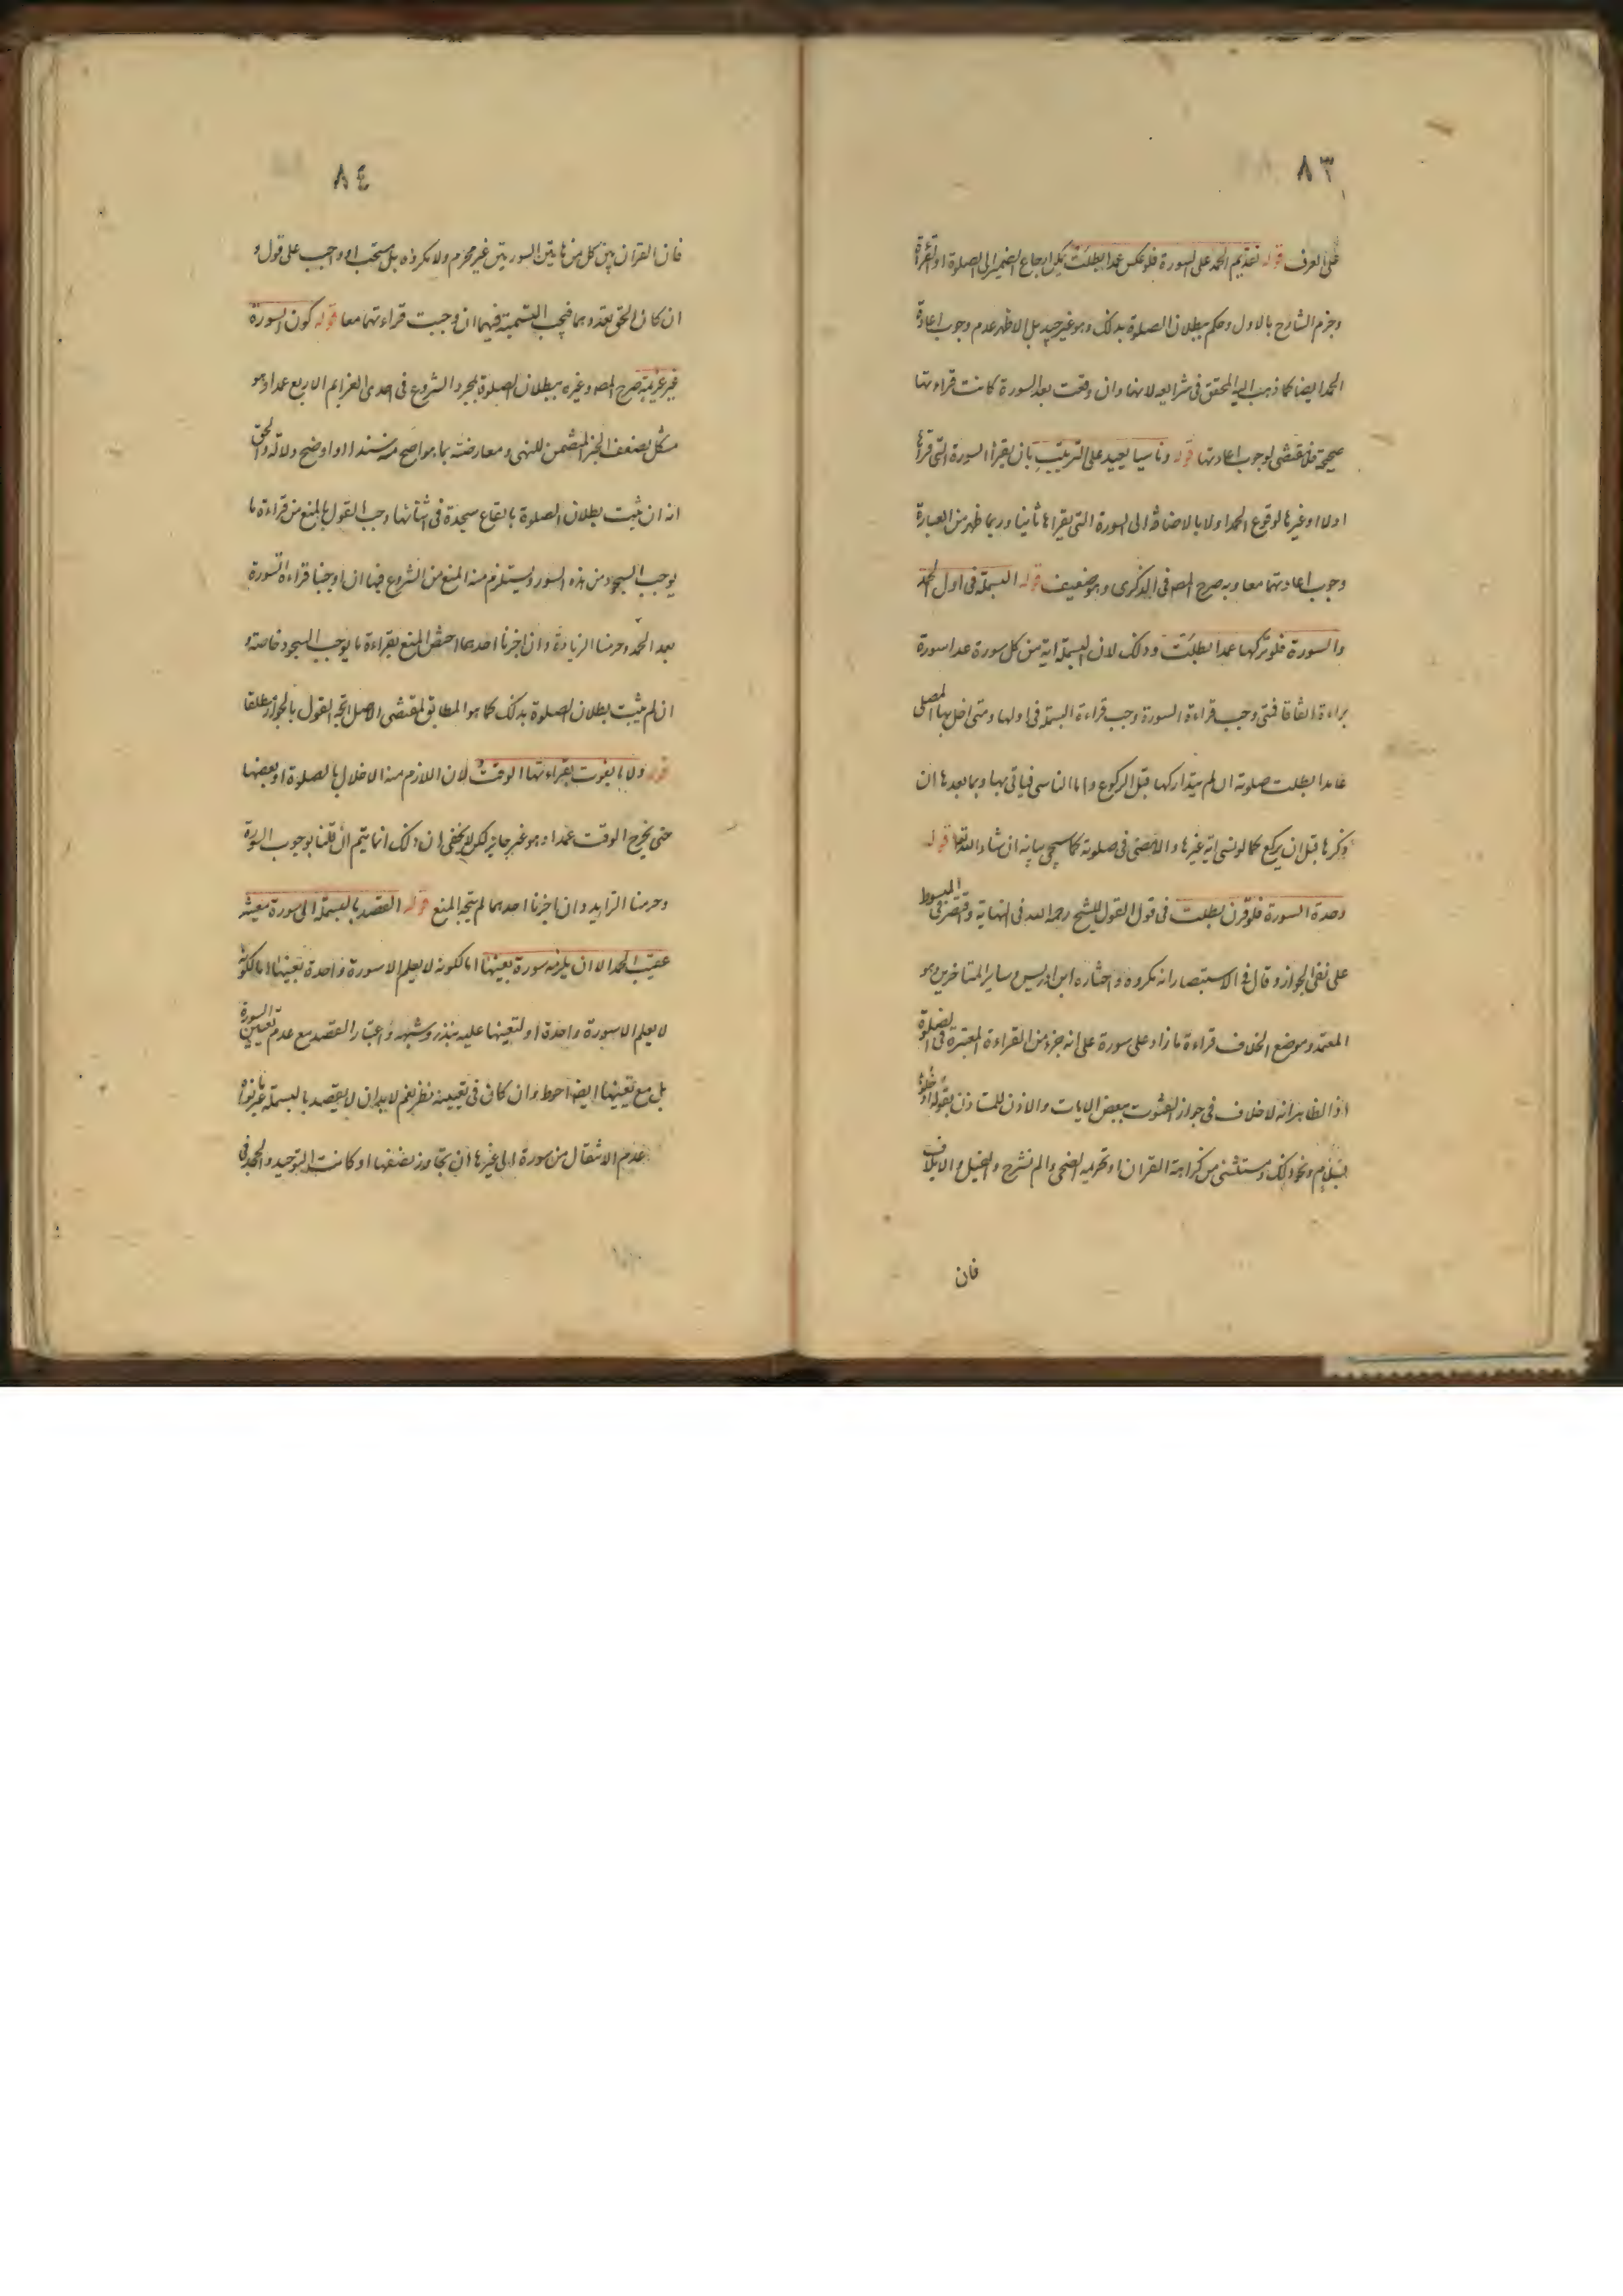 ٨٣
على العرف قوله تقديم الحمد على السورة فلو عكس عمدا بطلت يمكن ارجاع الضمير الى الصلوة او القراءة
وجزم الشارح بالاول وحكم ببطلان الصلوة بذلك وهو غير جيد بل الاظهر عدم وجوب اعادة
الحمد ايضا كما ذهب اليه المحقق في شرايعه لانها وان وقعت بعد السورة كانت قراءتها
صحيحة فلا مقتضى لوجوب اعادتها قوله وناسيا يعيد على الترتيب بان يقرأ السورة التي قرأها
اولا او غيرها لوقوع الحمد اولا بالاضافة الى السورة التي يقراها ثانيا وربما ظهر من العبارة
وجوب اعادتهما معا وبه صرح المصـ في الذكرى وهو ضعيف قوله البسملة في اول الحمد
والسورة فلو تركها عمدا بطلت وذلك لان البسملة اية من كل سورة عدا سورة
براءة اتفاقا فمتى وجب قراءة السورة وجب قراءة البسملة في اولها ومتى اخل بها المصلى
عامدا بطلت صلوته ان لم يتداركها قبل الركوع واما الناسى فياتى بها وبما بعدها ان
ذكرها قبل ان يركع كما لو نسى اية غيرها والا مضى في صلوته كما سيجي بيانه ان شاء الله تعا قوله
وحدة السورة فلو قرن بطلت في قول القول للشيخ رحمه الله في النهاية واقتصر في المبسوط
على نفى الجواز وقال في الاستبصار انه مكروه واختاره ابن ادريس وساير المتاخرين وهو
المعتمد وموضع الخلاف قراءة ما زاد على سورة على انه جزء من القراءة المعتبرة في الصلوة
اذ الظاهر انه لا خلاف في جواز القنوت ببعض الايات والاذن للمستاذن بقوله ادخلوها
بسلام ونحو ذلك ومستثنى من كراهة القران او تحريمه الضحى والم نشرح والفيل والايلاف
فان
٨٤
فان القران بين كل من هاتين السورتين غير محرم ولا مكروه بل مستحب او واجب على قول و
ان كان الحق تعددهما فتجب التسمية فيهما ان وجبت قراءتهما معا قوله كون السورة
غير عزيمة صرح المصـ وغيره ببطلان الصلوة بمجرد الشروع في احدى العزايم الاربع عمدا وهو
مشكل لضعف الخبر المتضمن للنهى ومعارضته بما هو اصح منه سندا او اوضح دلالة والحق
انه ان ثبت بطلان الصلوة بايقاع سجدة في اثنائها وجب القول بالمنع من قراءة ما
يوجب السجود من هذه السور ويستلزم منه المنع من الشروع فيها ان اوجبنا قراءة السورة
بعد الحمد وحرمنا الزيادة وان اجزنا احدهما اختص المنع بقراءة ما يوجب السجود خاصة و
ان لم يثبت بطلان الصلوة بذلك كما هو المطابق لمقتضى الاصل اتجه القول بالجواز مطلقا
قوله ولا ما يفوت بقراءتها الوقت لان اللازم منه الاخلال بالصلوة او بعضها
حتى يخرج الوقت عمدا وهو غير جايز لكن لا يخفى ان ذلك انما يتم ان قلنا بوجوب السورة
وحرمنا الزايد وان اجزنا احدهما لم يتجه المنع قوله القصد بالبسملة الى سورة معينة
عقيب الحمد الا ان يلزمه سورة بعينها اما لكونه لا يعلم الا سورة واحدة بعينها اما لكونه
لا يعلم الا سورة واحدة او لتعينها عليه بنذر وشبهه واعتبار القصد مع عدم تعيين السورة
بل مع تعينها ايضا احوط وان كان في تعيينه نظر نعم لا بد ان لا يقصد بالبسملة غيرها قوله
عدم الانتقال من سورة الى غيرها ان تجاوز نصفها او كانت التوحيد والجحد في